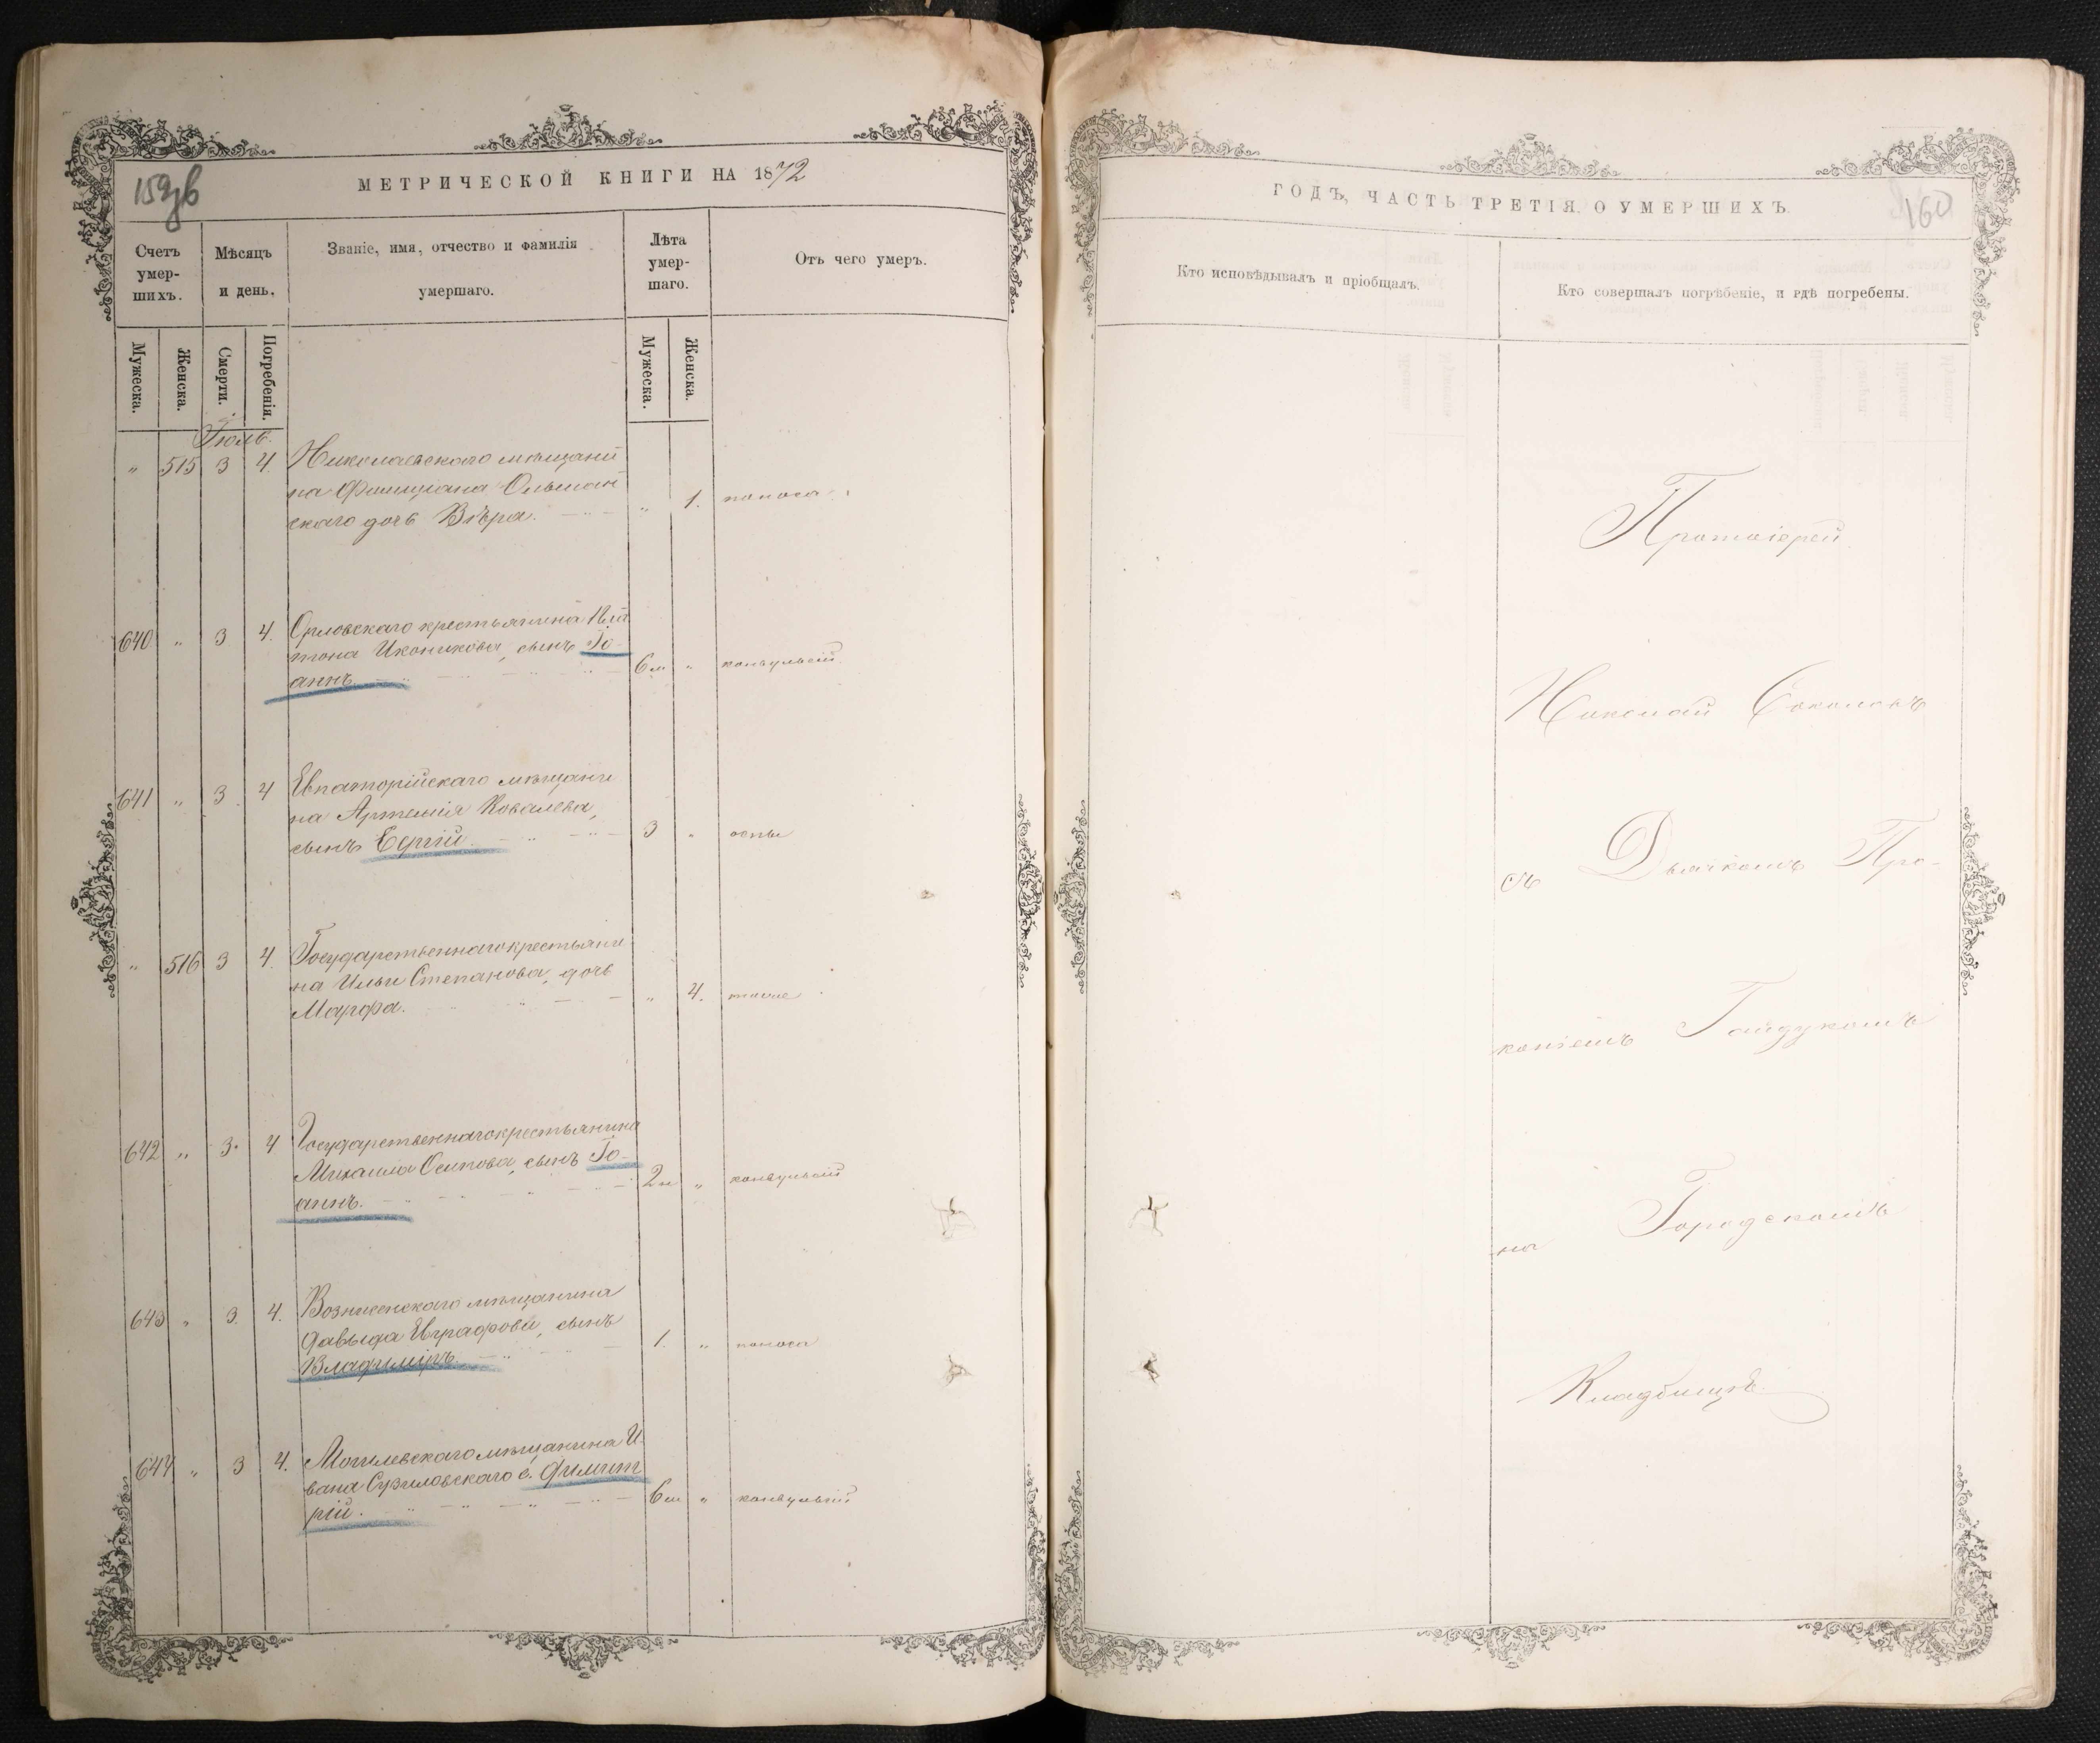 159 об
МЕТРИЧЕСКОЙ КНИГИ НА 1872
Счетъ умер-шихъ.
Мѣсяцъ и день.
Званіе, имя, отчество и фамилія умершаго.
Лѣта умер-шаго.
Отъ чего умеръ.
Мужеска.
Женска.
Смерти.
Погребенія.
Мужеска.
Женска.
Іюль.
" 515 3 4. Николаевскаго мѣщани
на Ольшан
скаго дочь Вѣра. " 1. поноса
640 " 3 4. Орловскаго крестьянина Пла
тона Иконикова, сынъ Іо-
аннъ. 6 м " конвульсій
641 " 3 4 Евпаторійскаго мѣщани
на Артемія Ковалева,
сынъ 3 " оспы
" 516 3 4. Государственнаго крестьяни
на Ильи Степанова, дочь
Марфа. " 4. тоже
642 " 3. 4 Государственнаго крестьянина
Михаила Осипова, сынъ Іо-
аннъ. 2 н " конвульсій
643 " 3. 4. Вознисенскаго мѣщанина
Давыда Евграфова, сынъ
Владиміръ. 1. " поноса
644 " 3 4. Могилевскаго мѣщанина И-
вана с. Димит
рій. 6 м " конвульсій
ГОДЪ, ЧАСТЬ ТРЕТІЯ О УМЕРШИХЪ.
160
Кто исповѣдывалъ и пріобщалъ.
Кто совершалъ погрѣбеніе, и гдѣ погребены.
Протоіерей
Николай Соколовъ
съ Дьячкомъ Про-
копіемъ Гайдукомъ
на Городскомъ
Кладбищѣ.